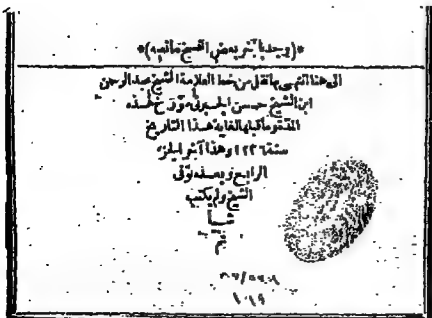 *(يوجد بآخر بعض النسخ مانصه)*
الى هنا انتهى مانقل من خط العلامة الشيخ عبد الرحمن
ابن الشيخ حسن الجبرتى مؤرخ هذه
المدة وماقبلها لغاية هذا التاريخ
سنة ١٢٣٦ وهذا آخر الجزء
الرابع وبعده توفى
الشيخ ولم يكتب
شيأ
تم